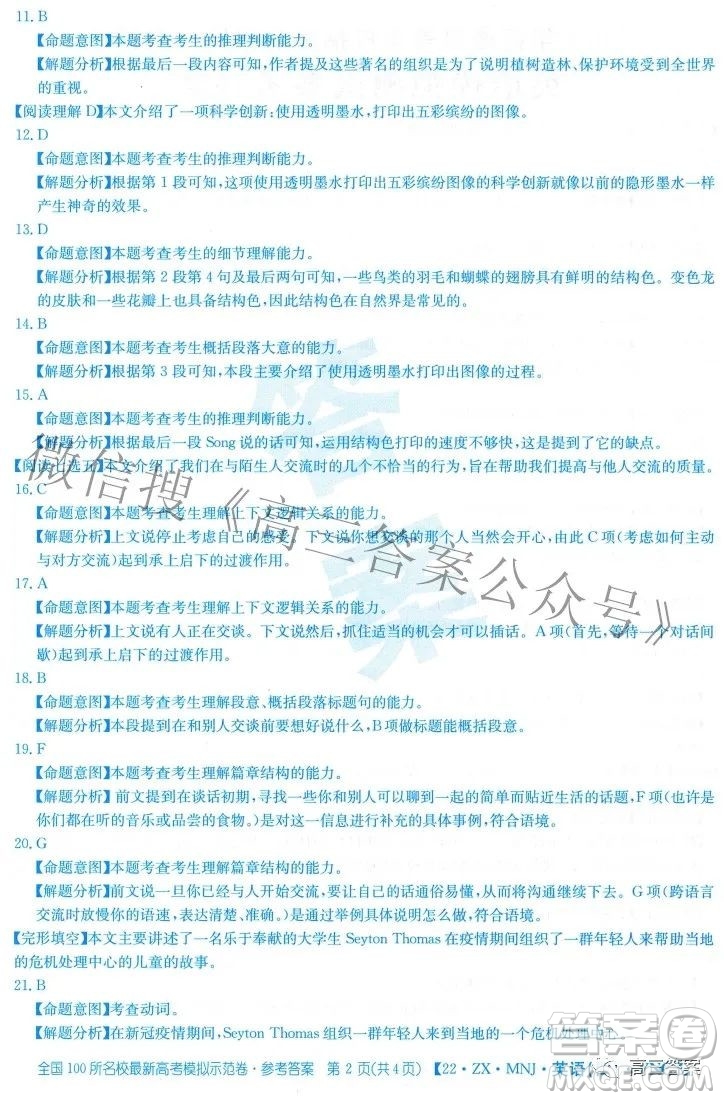 11. B
【命题意图】本题考查考生的推理判断能力。
【解题分析】根据最后一段内容可知,作者提及这些著名的组织是为了说明植树造林、保护环境受到全世界
的重视。
【阅读理解 D】本文介绍了一项科学创新:使用透明墨水,打印出五彩缤纷的图像。
12. D
【命题意图】本题考查考生的推理判断能力。
【解题分析】根据第 1 段可知,这项使用透明墨水打印出五彩缤纷图像的科学创新就像以前的隐形墨水一样
产生神奇的效果。
13. D
【命题意图】本题考查考生的细节理解能力。
【解题分析】根据第 2 段第 4 句及最后两句可知,一些鸟类的羽毛和蝴蝶的翅膀具有鲜明的结构色。变色龙
的皮肤和一些花瓣上也具备结构色,因此结构色在自然界是常见的。
14. B
【命题意图】本题考查考生概括段落大意的能力。
【解题分析】根据第 3 段可知,本段主要介绍了使用透明墨水打印出图像的过程。
15. A
【命题意图】本题考查考生的推理判断能力。
【解题分析】根据最后一段 Song 说的话可知,运用结构色打印的速度不够快,这是提到了它的缺点。
【阅读七选五】本文介绍了我们在与陌生人交流时的几个不恰当的行为,旨在帮助我们提高与他人交流的质量。
16. C
【命题意图】本题考查考生理解上下文逻辑关系的能力。
【解题分析】上文说停止考虑自己的感受。下文说你想交谈的那个人当然会开心,由此 C 项(考虑如何主动
与对方交流)起到承上启下的过渡作用。
17. A
【命题意图】本题考查考生理解上下文逻辑关系的能力。
【解题分析】上文说有人正在交谈。下文说然后,抓住适当的机会才可以插话。A 项(首先,等待一个对话间
歇)起到承上启下的过渡作用。
18. B
【命题意图】本题考查考生理解段意、概括段落标题句的能力。
【解题分析】本段提到在和别人交谈前要想好说什么,B 项做标题能概括段意。
19. F
【命题意图】本题考查考生理解篇章结构的能力。
【解题分析】前文提到在谈话初期,寻找一些你和别人可以聊到一起的简单而贴近生活的话题,F 项(也许是
你们都在听的音乐或品尝的食物。)是对这一信息进行补充的具体事例,符合语境。
20. G
【命题意图】本题考查考生理解篇章结构的能力。
【解题分析】前文说一旦你已经与人开始交流,要让自己的话通俗易懂,从而将沟通继续下去。G 项(跨语言
交流时放慢你的语速,表达清楚、准确。)符合语境。
【完形填空】本文主要讲述了一名乐于奉献的大学生 Seyton Thomas 在疫情期间组织了一群年轻人来帮助当地
的危机处理中心的儿童的故事。
21. B
【命题意图】考查动词。
【解题分析】在新冠疫情期间,Seyton Thomas 组织一群年轻人来到当地的一个危机处理中心
全国 100 所名校最新高考模拟示范卷·参考答案 第 2 页(共 4 页) 【22·ZX·MNJ·英语
微信搜《高三答案公众号》
答案
高三答案